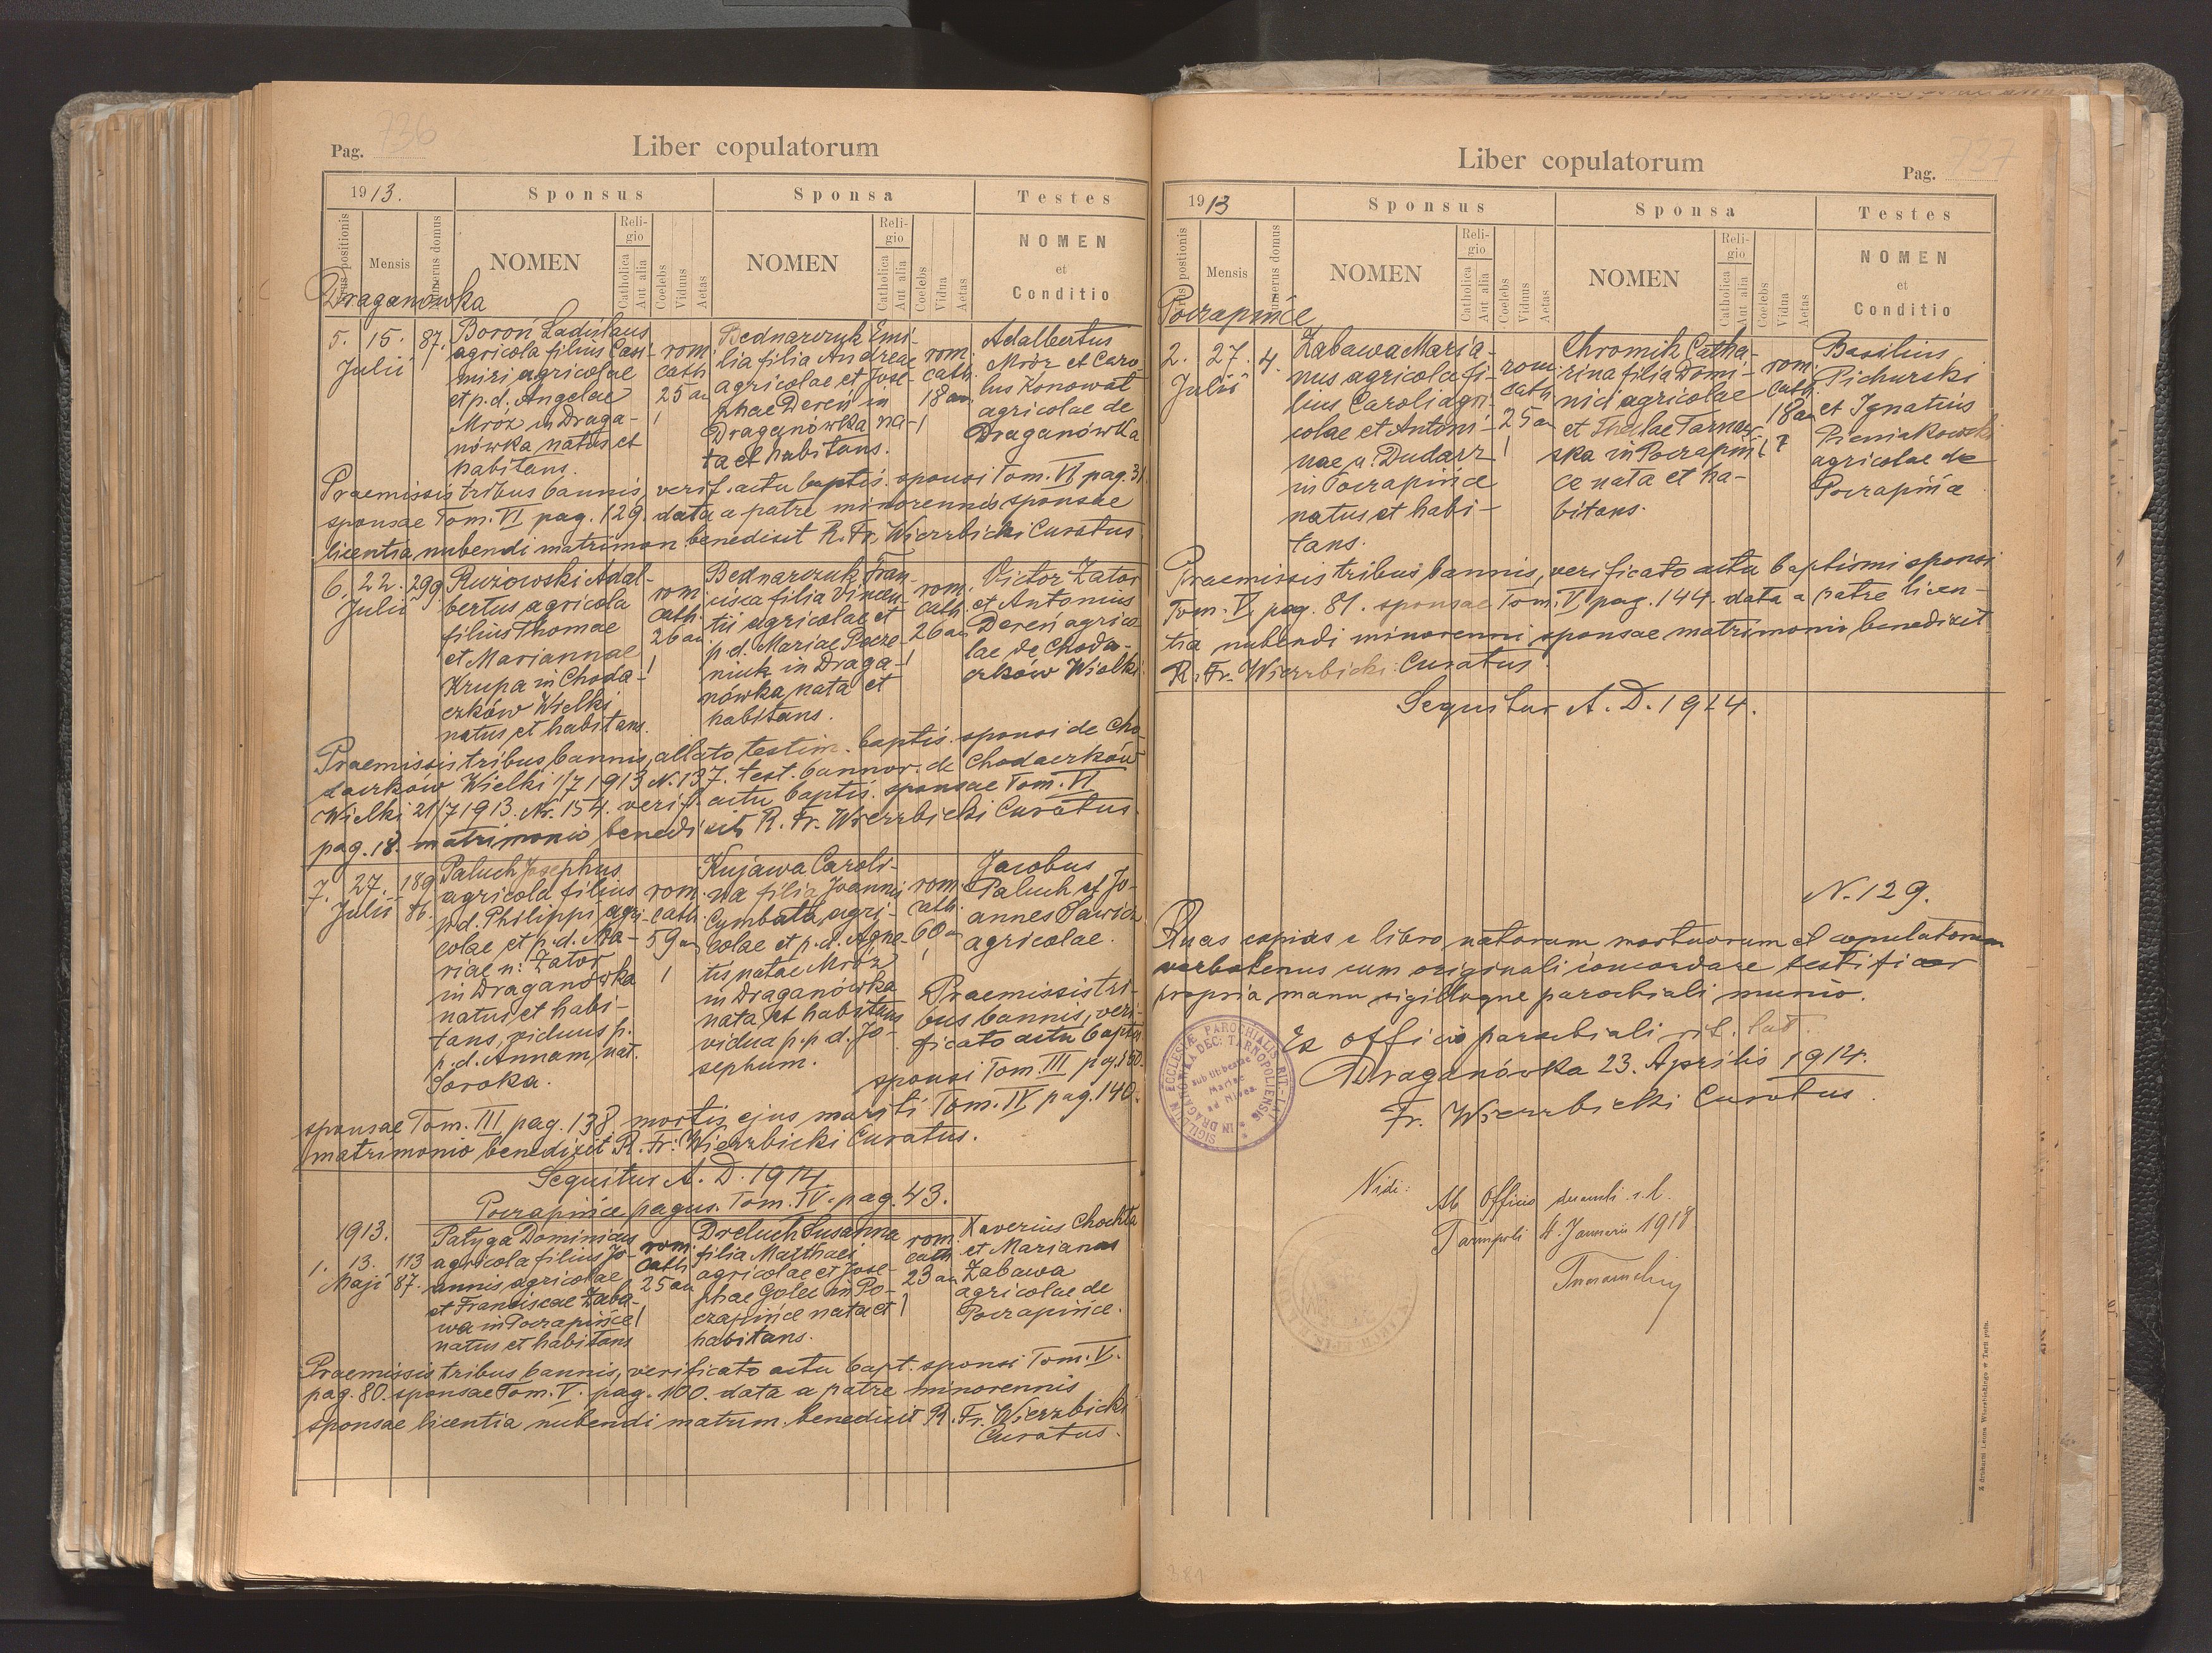 736
Pag.
Liber copulatorum
1913.
Sponsus
Sponsa
Testes
Mensis
Numerus domus
NOMEN
Religio
Catholica
Aut alia
Coelebs
Viduus
Aetas
NOMEN
Religio
Catholica
Aut alia
Coelebs
Vidua
Aetas
NOMEN
et
Conditio
Draganówka
5. 15. 87.
Julii
Boroń Ladislaus
agricola filius Casi-
miri agricolae
et p. d. Angelae
Mróz in Draga-
nówka natus et
habitans.
rom.
cath.
25 an
1
Bednarczuk Emi-
lia filia Andreae
agricolae et Jose-
phae Dereń in
Draganówka na-
ta et habitans.
rom.
cath.
18 an.
1
Adalbertus
Mróz et Caro
lus Konował
agricolae de
Draganówka
Praemissis tribus bannis, verif. actu baptis. sponsi Tom. VI pag. 31
sponsae Tom. VI pag. 129. data a patre minorennis sponsae
licentia nubendi matrimon benedixit R. Fr. Wierzbicki Curatus
6. 22. 299
Julii
Ruzowski Adal-
bertus agricola
filius Thomae
et Mariannae
Krupa in Choda-
czków Wielki
natus et habitans.
rom.
cath.
26 an
1
Bednarczuk Fran-
cisca filia Vincen-
tii agricolae et
p. d. Mariae Pacze-
niuk in Draga-
nówka nata et
habitans.
rom.
cath.
26 an
1
Victor Zator
et Antonius
Dereń agrico
lae de Choda-
czków Wielki.
Praemissis tribus bannis, allato testim. baptis. sponsi de Cho-
daczków Wielki 1/7 1913 N. 137. test. bannor. de Chodaczków
Wielki 21/7 1913. Nr. 154. verif. actu baptis. sponsae Tom. VI
pag. 18. matrimonio benedixit R. Fr. Wierzbicki Curatus.
7. 27. 189
Julii 86.
Paluch Josephus
agricola filius
p.d. Philippi agri-
colae et p. d. Ma-
riae n: Zator
in Draganówka
natus et habi-
tans, viduus p.
p. d. Annam nat.
Soroka.
rom.
cath.
59 an
1
Kujawa Caroli-
na filia Joannis
Cymbała agri-
colae et p. d. Agne-
tis natae Mróz
in Draganówka
nata et habitans
vidua p. p d. Jo-
sephum.
rom.
cath.
60 an
1
Jacobus
Paluch et Jo-
annes Sawicz
agricolae.
Praemissis tri-
bus bannis, veri-
ficato actu baptis
sponsi Tom. III pag. 150.
sponsae Tom. III pag. 138 mortis ejus mariti Tom. IV pag. 140.
matrimonio benedixit R. Fr: Wierzbicki Curatus.
Sequitur A. D. 1914.
Poczapińce pagus. Tom. IV. pag. 43.
1913.
1. 13. 113
Maji 87.
Patyga Dominicus
agricola filius Jo-
annis agricolae
et Franciscae Zaba-
wa in Poczapińce
natus et habitans
rom.
cath.
25 an
1
Dreluch Susanna
filia Matthaei
agricolae et Jose-
phae Golec in Po-
czapińce nata et
habitans.
rom.
cath.
23 an
1
Xaverius Chochta
et Marianus
Zabawa
agricolae de
Poczapińce.
Praemissis tribus bannis, verificato actu bapt. sponsi Tom. V.
pag. 80. sponsae Tom. V. pag. 100. data a patre minorennis
sponsae licentia nubendi matrim. benedixit R. Fr. Wierzbicki
Curatus.
737
Liber copulatorum
Pag.
1913
Sponsus
Sponsa
Testes
Mensis
Numerus domus
NOMEN
Religio
Catholica
Aut alia
Coelebs
Viduus
Aetas
NOMEN
Religio
Catholica
Aut alia
Coelebs
Vidua
Aetas
NOMEN
et
Conditio
Poczapińce
2. 27. 4.
Julii
Zabawa Maria-
nus agricola fi-
lius Caroli agri-
colae et Antoni-
nae n. Dudarz
in Poczapińce
natus et habi-
tans.
rom.
cath.
25 an
1
Chromik Catha-
rina filia Domi-
nici agricolae
et Theclae Tarnaw-
ska in Poczapiń-
ce nata et ha-
bitans.
rom.
cath.
18 an
1
Basilius
Pichurski
et Ignatius
Pieniakowski
agricolae de
Poczapińce
Praemissis tribus bannis, verificato actu baptismi sponsi
Tom. V pag. 81. sponsae Tom. V pag. 144. data a patre licen-
tia nubendi minorenni sponsae matrimonio benedixit
R. Fr. Wierzbicki Curatus.
Sequitur A. D. 1914.
N. 129.
Quas copias e libro natorum mortuorum et copulatorum
verbotenus cum originali concordare testificor
propria manu sigilloque parochiali munio.
Ex officio parochiali rit. lat.
Draganówka 23. Aprilis 1914.
Fr. Wierzbicki Curatus.
SIGILLUM ECCLESIÆ PAROCHIALIS RIT. LAT. IN DRAGANÓWKA DEC: TARNOPOLIENSIS
sub titulo Beatae
Mariae
ad Nives
Vidi:
Ab Officio decanali r. l.
Tarnopoli 4. Januarii 1918
Z drukarni Leona Wierzbickiego w Tarnopolu.
381